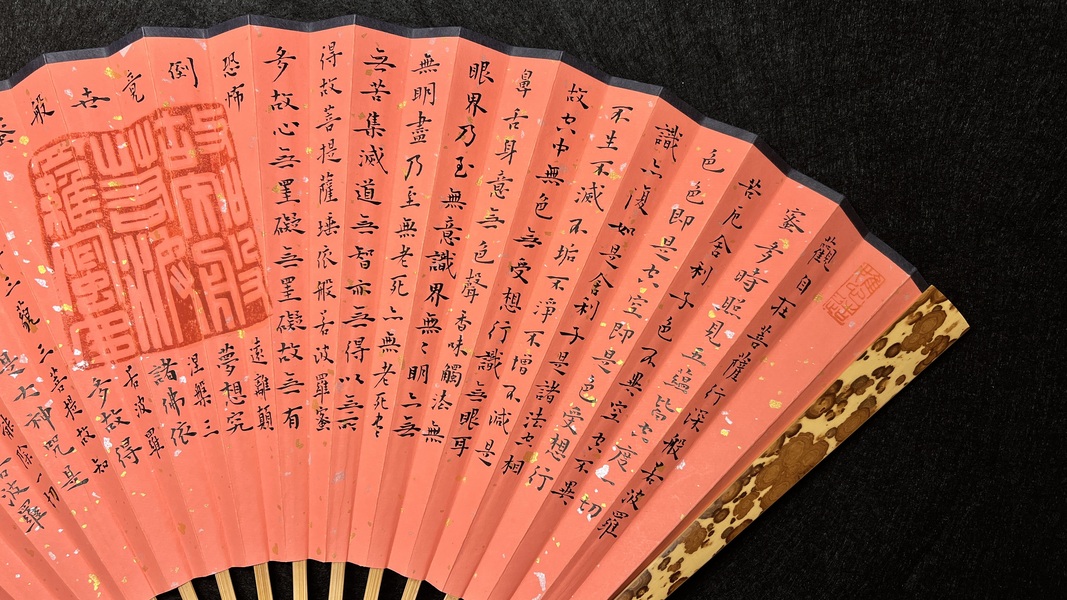 觀自在菩薩行深般若波羅
蜜多時照見五蘊皆空度一切
苦厄舍利子色不異空空不異
色色即是空空即是色受想行
識亦復如是舍利子是諸法空相
不生不滅不垢不淨不增不減是
故空中無色無受想行識無眼耳
鼻舌身意無色聲香味觸法無
眼界乃至無意識界無〻明亦無
無明盡乃至無老死亦無老死盡
無苦集滅道無智亦無得以無所
得故菩提薩埵依般若波羅蜜
多故心無罣礙無罣礙故無有
恐怖遠離顛
倒夢想究
竟涅槃三
世諸佛依
般若波羅
蜜多故得
三藐三菩提故知
是大神咒是